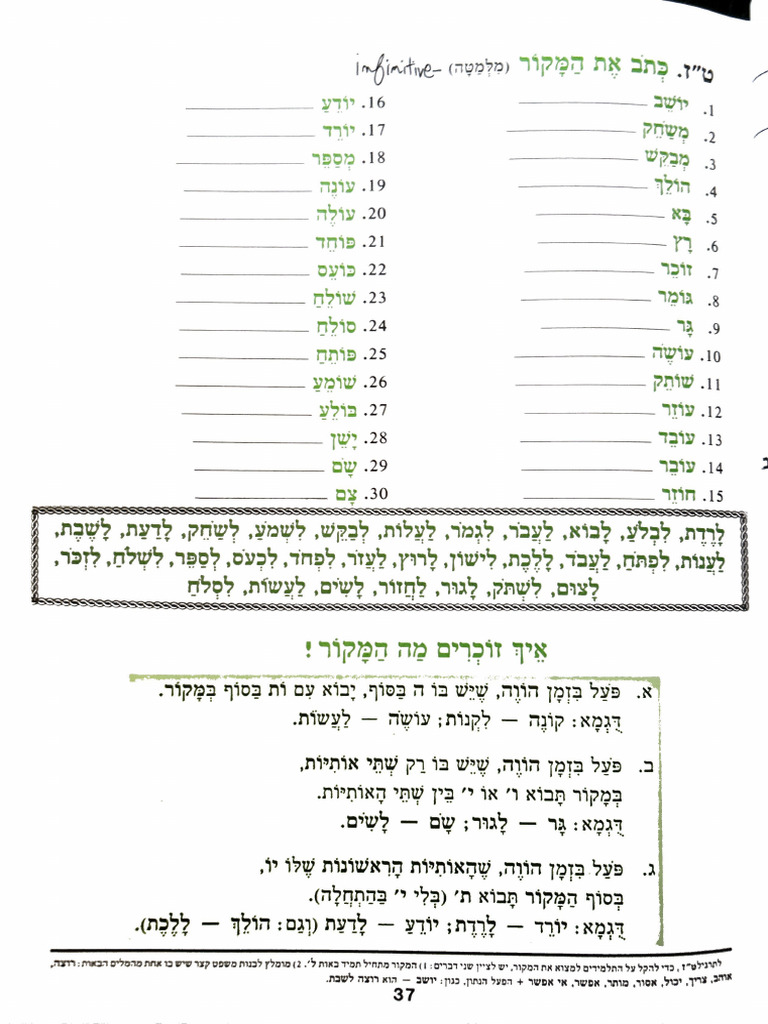 ט״ז. כְּתֹב אֶת הַמָּקוֹר (מִלְמַטָּה) -infinitive
1. יוֹשֵׁב
2. מְשַׂחֵק
3. מְבַקֵּשׁ
4. הוֹלֵךְ
5. בָּא
6. רָץ
7. זוֹכֵר
8. גּוֹמֵר
9. גָּר
10. עוֹשֶׂה
11. שׁוֹתֵק
12. עוֹזֵר
13. עוֹבֵד
14. עוֹבֵר
15. חוֹזֵר
16. יוֹדֵעַ
17. יוֹרֵד
18. מְסַפֵּר
19. עוֹנֶה
20. עוֹלֶה
21. פּוֹחֵד
22. כּוֹעֵס
23. שׁוֹלֵחַ
24. סוֹלֵחַ
25. פּוֹתֵחַ
26. שׁוֹמֵעַ
27. בּוֹלֵעַ
28. יָשֵׁן
29. שָׂם
30. צָם
לָרֶדֶת, לִבְלֹעַ, לָבוֹא, לַעֲבֹר, לִגְמֹר, לַעֲלוֹת, לְבַקֵּשׁ, לִשְׁמֹעַ, לְשַׂחֵק, לָדַעַת, לָשֶׁבֶת,
לַעֲנוֹת, לִפְתֹּחַ, לַעֲבֹד, לָלֶכֶת, לִישׁוֹן, לָרוּץ, לַעֲזֹר, לִפְחֹד, לִכְעֹס, לְסַפֵּר, לִשְׁלֹחַ, לִזְכֹּר,
לָצוּם, לִשְׁתֹּק, לָגוּר, לַחֲזוֹר, לָשִׂים, לַעֲשׂוֹת, לִסְלֹחַ
אֵיךְ זוֹכְרִים מַה הַמָּקוֹר !
א. פֹּעַל בִּזְמַן הוֹוֶה, שֶׁיֵּשׁ בּוֹ ה בַּסּוֹף, יָבוֹא עִם וֹת בַּסּוֹף בְּמָּקוֹר.
דֻּגְמָא: קוֹנֶה — לִקְנוֹת; עוֹשֶׂה — לַעֲשׂוֹת.
ב. פֹּעַל בִּזְמַן הוֹוֶה, שֶׁיֵּשׁ בּוֹ רַק שְׁתֵּי אוֹתִיּוֹת,
בְּמָקוֹר תָּבוֹא ו׳ אוֹ י׳ בֵּין שְׁתֵּי הָאוֹתִיּוֹת.
דֻּגְמָא: גָּר — לָגוּר; שָׂם — לָשִׂים.
ג. פֹּעַל בִּזְמַן הוֹוֶה, שֶׁהָאוֹתִיּוֹת הָרִאשׁוֹנוֹת שֶׁלּוֹ יוֹ,
בְּסוֹף הַמָּקוֹר תָּבוֹא ת׳ (בְּלִי י׳ בַּהַתְחָלָה).
דֻּגְמָא: יוֹרֵד — לָרֶדֶת; יוֹדֵעַ — לָדַעַת (וְגַם: הוֹלֵךְ — לָלֶכֶת).
לתרגיל ט״ז, כדי להקל על התלמידים למצוא את המקור, יש לציין שני דברים: 1) המקור מתחיל תמיד באות ל׳. 2) מומלץ לבנות משפט קצר שיש בו אחת מהמלים הבאות: רוצה,
אוהב, צריך, יכול, אסור, מותר, אפשר, אי אפשר + הפעל הנתון, כגון: יושב — הוא רוצה לשבת.
37